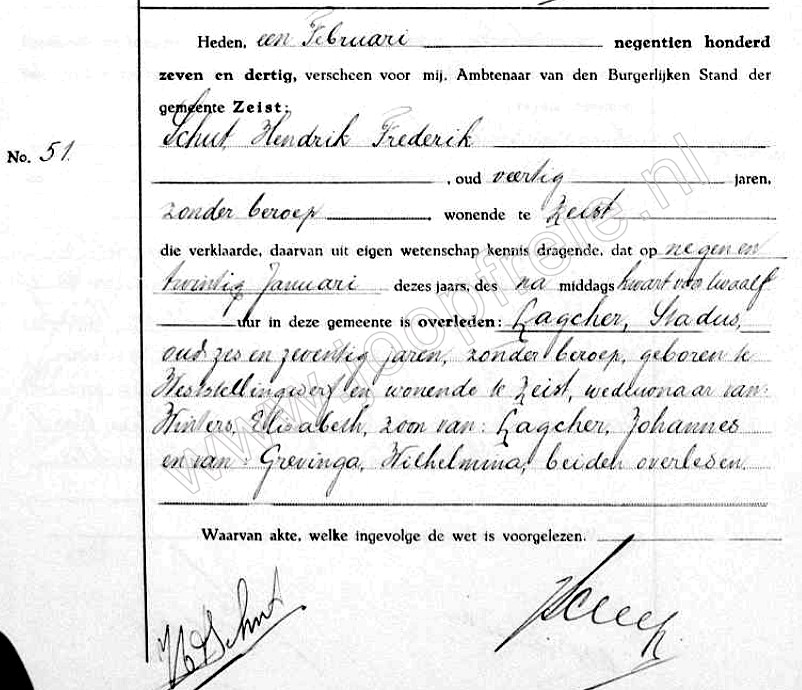 Heden, een Februari negentien honderd
zeven en dertig, verscheen voor mij. Ambtenaar van den Burgerlijken Stand der
gemeente Zeist:
Schut, Hendrik Frederik
No. 51.
, oud veertig jaren,
zonder beroep, wonende te Zeist
die verklaarde, daarvan uit eigen wetenschap kennis dragende, dat op negen en
twintig Januari dezes jaars, des na middags kwart voor twaalf
uur in deze gemeente is overleden: Lagcher, Stadus,
oud zes en zeventig jaren, zonder beroep, geboren te
Weststellingwerf en wonende te Zeist, weduwnaar van:
Winters, Elisabeth, zoon van: Lagcher, Johannes
en van: Grevinga, Wilhelmina, beiden overleden.
Waarvan akte, welke ingevolge de wet is voorgelezen.
www.toopfreie.nl
Schut